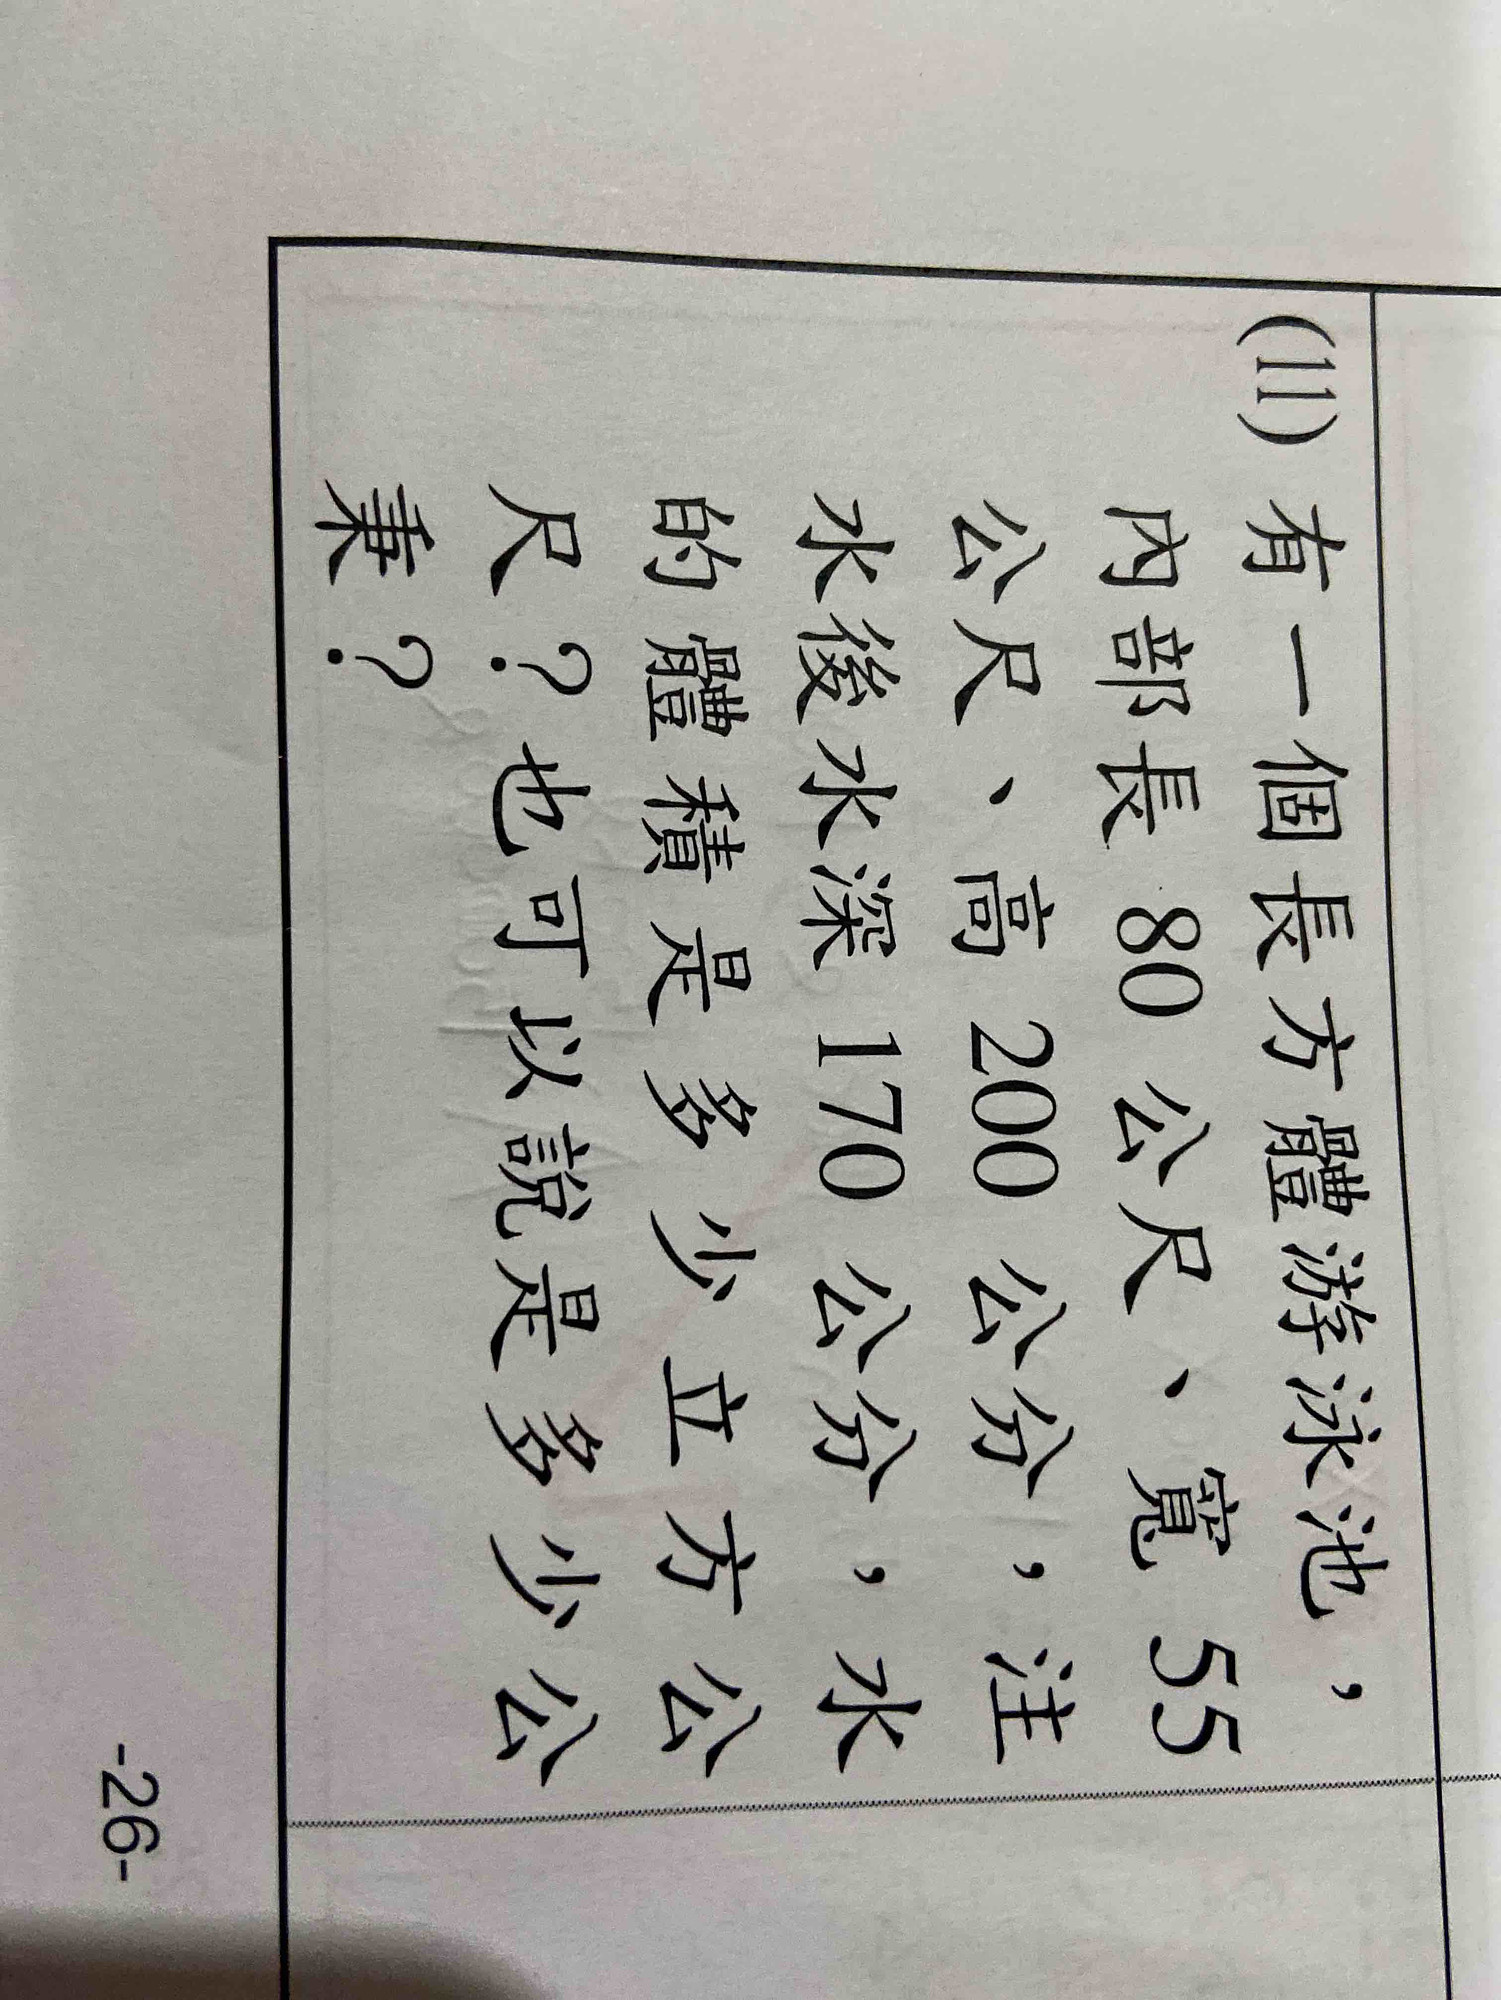 (11) 有一個長方體游泳池，
內部長 80 公尺、寬 55
公尺、高 200 公分，注
水後水深 170 公分，水
的體積是多少立方公
尺？也可以說是多少公
秉？
-26-